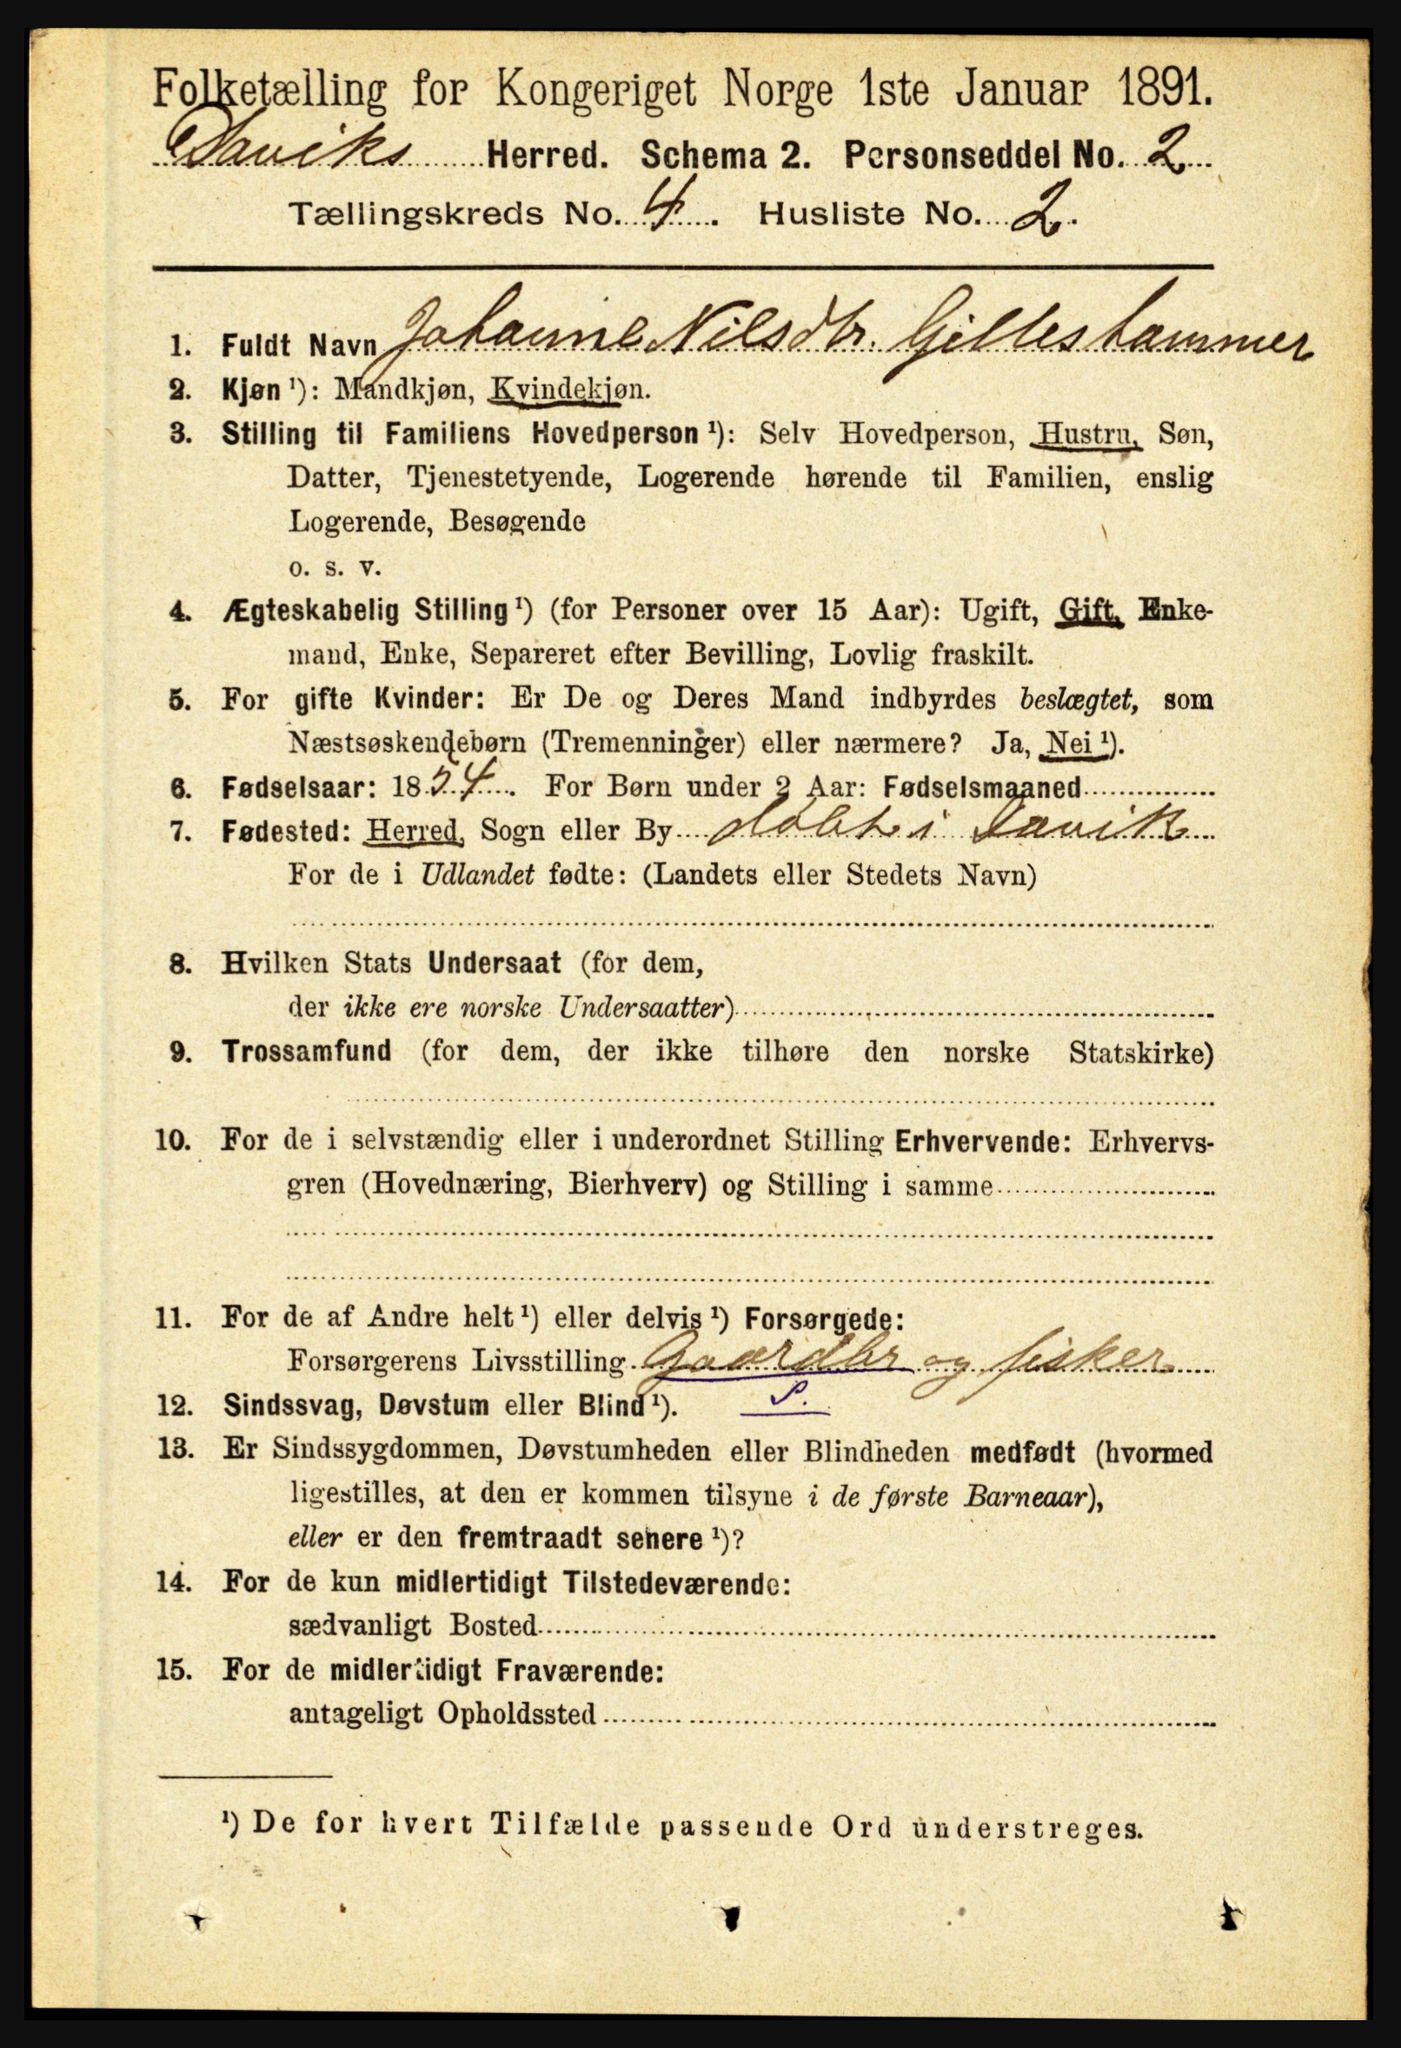 Folketælling for Kongeriget Norge 1ste Januar 1891.
Daviks Herred. Schema 2. Personseddel No. 2
Tællingskreds No. 4. Husliste No. 2.
1. Fuldt Navn Johanne Nilsdtr. Gilleshammer
2. Kjøn ¹): Mandkjøn, Kvindekjøn.
3. Stilling til Familiens Hovedperson ¹): Selv Hovedperson, Hustru, Søn,
Datter, Tjenestetyende, Logerende hørende til Familien, enslig
Logerende, Besøgende
o. s. v.
4. Ægteskabelig Stilling ¹) (for Personer over 15 Aar): Ugift, Gift, Enke-
mand, Enke, Separeret efter Bevilling, Lovlig fraskilt.
5. For gifte Kvinder: Er De og Deres Mand indbyrdes beslægtet, som
Næstsøskendebørn (Tremenninger) eller nærmere? Ja, Nei ¹).
6. Fødselsaar: 1854. For Børn under 2 Aar: Fødselsmaaned
7. Fødested: Herred, Sogn eller By døbt i Davik
For de i Udlandet fødte: (Landets eller Stedets Navn)
8. Hvilken Stats Undersaat (for dem,
der ikke ere norske Undersaatter)
9. Trossamfund (for dem, der ikke tilhøre den norske Statskirke)
10. For de i selvstændig eller i underordnet Stilling Erhvervende: Erhvervs-
gren (Hovednæring, Bierhverv) og Stilling i samme
11. For de af Andre helt ¹) eller delvis ¹) Forsørgede:
Forsørgerens Livsstilling Gaardbr og fisker
12. Sindssvag, Døvstum eller Blind ¹). S.
13. Er Sindssygdommen, Døvstumheden eller Blindheden medfødt (hvormed
ligestilles, at den er kommen tilsyne i de første Barneaar),
eller er den fremtraadt senere ¹)?
14. For de kun midlertidigt Tilstedeværende:
sædvanligt Bosted
15. For de midlertidigt Fraværende:
antageligt Opholdssted
¹) De for hvert Tilfælde passende Ord understreges.